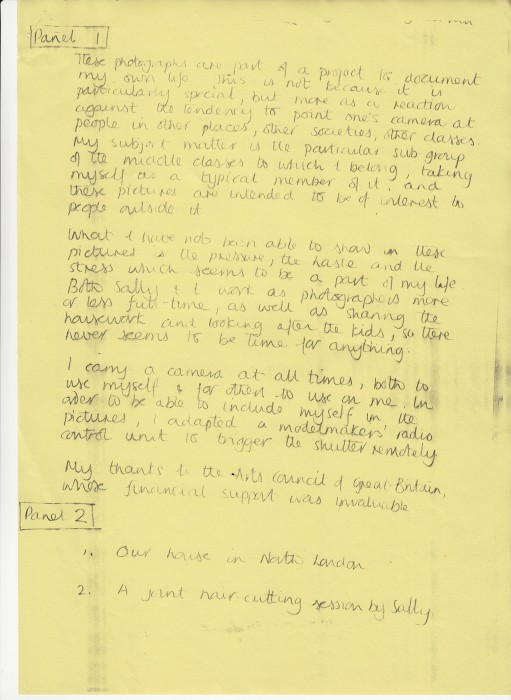 Panel 1
These photographs are part of a project to document
my own life This is not because it is
particularly special, but more as a reaction
against the tendency to point one's camera at
people in other places, other societies, other classes.
My subject matter is the particular sub group
of the middle classes to which I belong, taking
myself as a typical member of it, and
these pictures are intended to be of interest to
people outside it
What I have not been able to show in these
pictures is the pressure, the haste and the
stress which seems to be a part of my life
Both Sally & I work as photographers more
or less full-time, as well as sharing the
housework and looking after the kids, so there
never seems to be time for anything.
I carry a camera at all times, both to
use myself & for others to use on me. In
order to be able to include myself in the
pictures, I adapted a modelmakers' radio
control unit to trigger the shutter remotely
My thanks to the Arts Council of Great Britain,
whose financial support was invaluable
Panel 2
1. Our house in North London
2. A joint hair cutting session by Sally